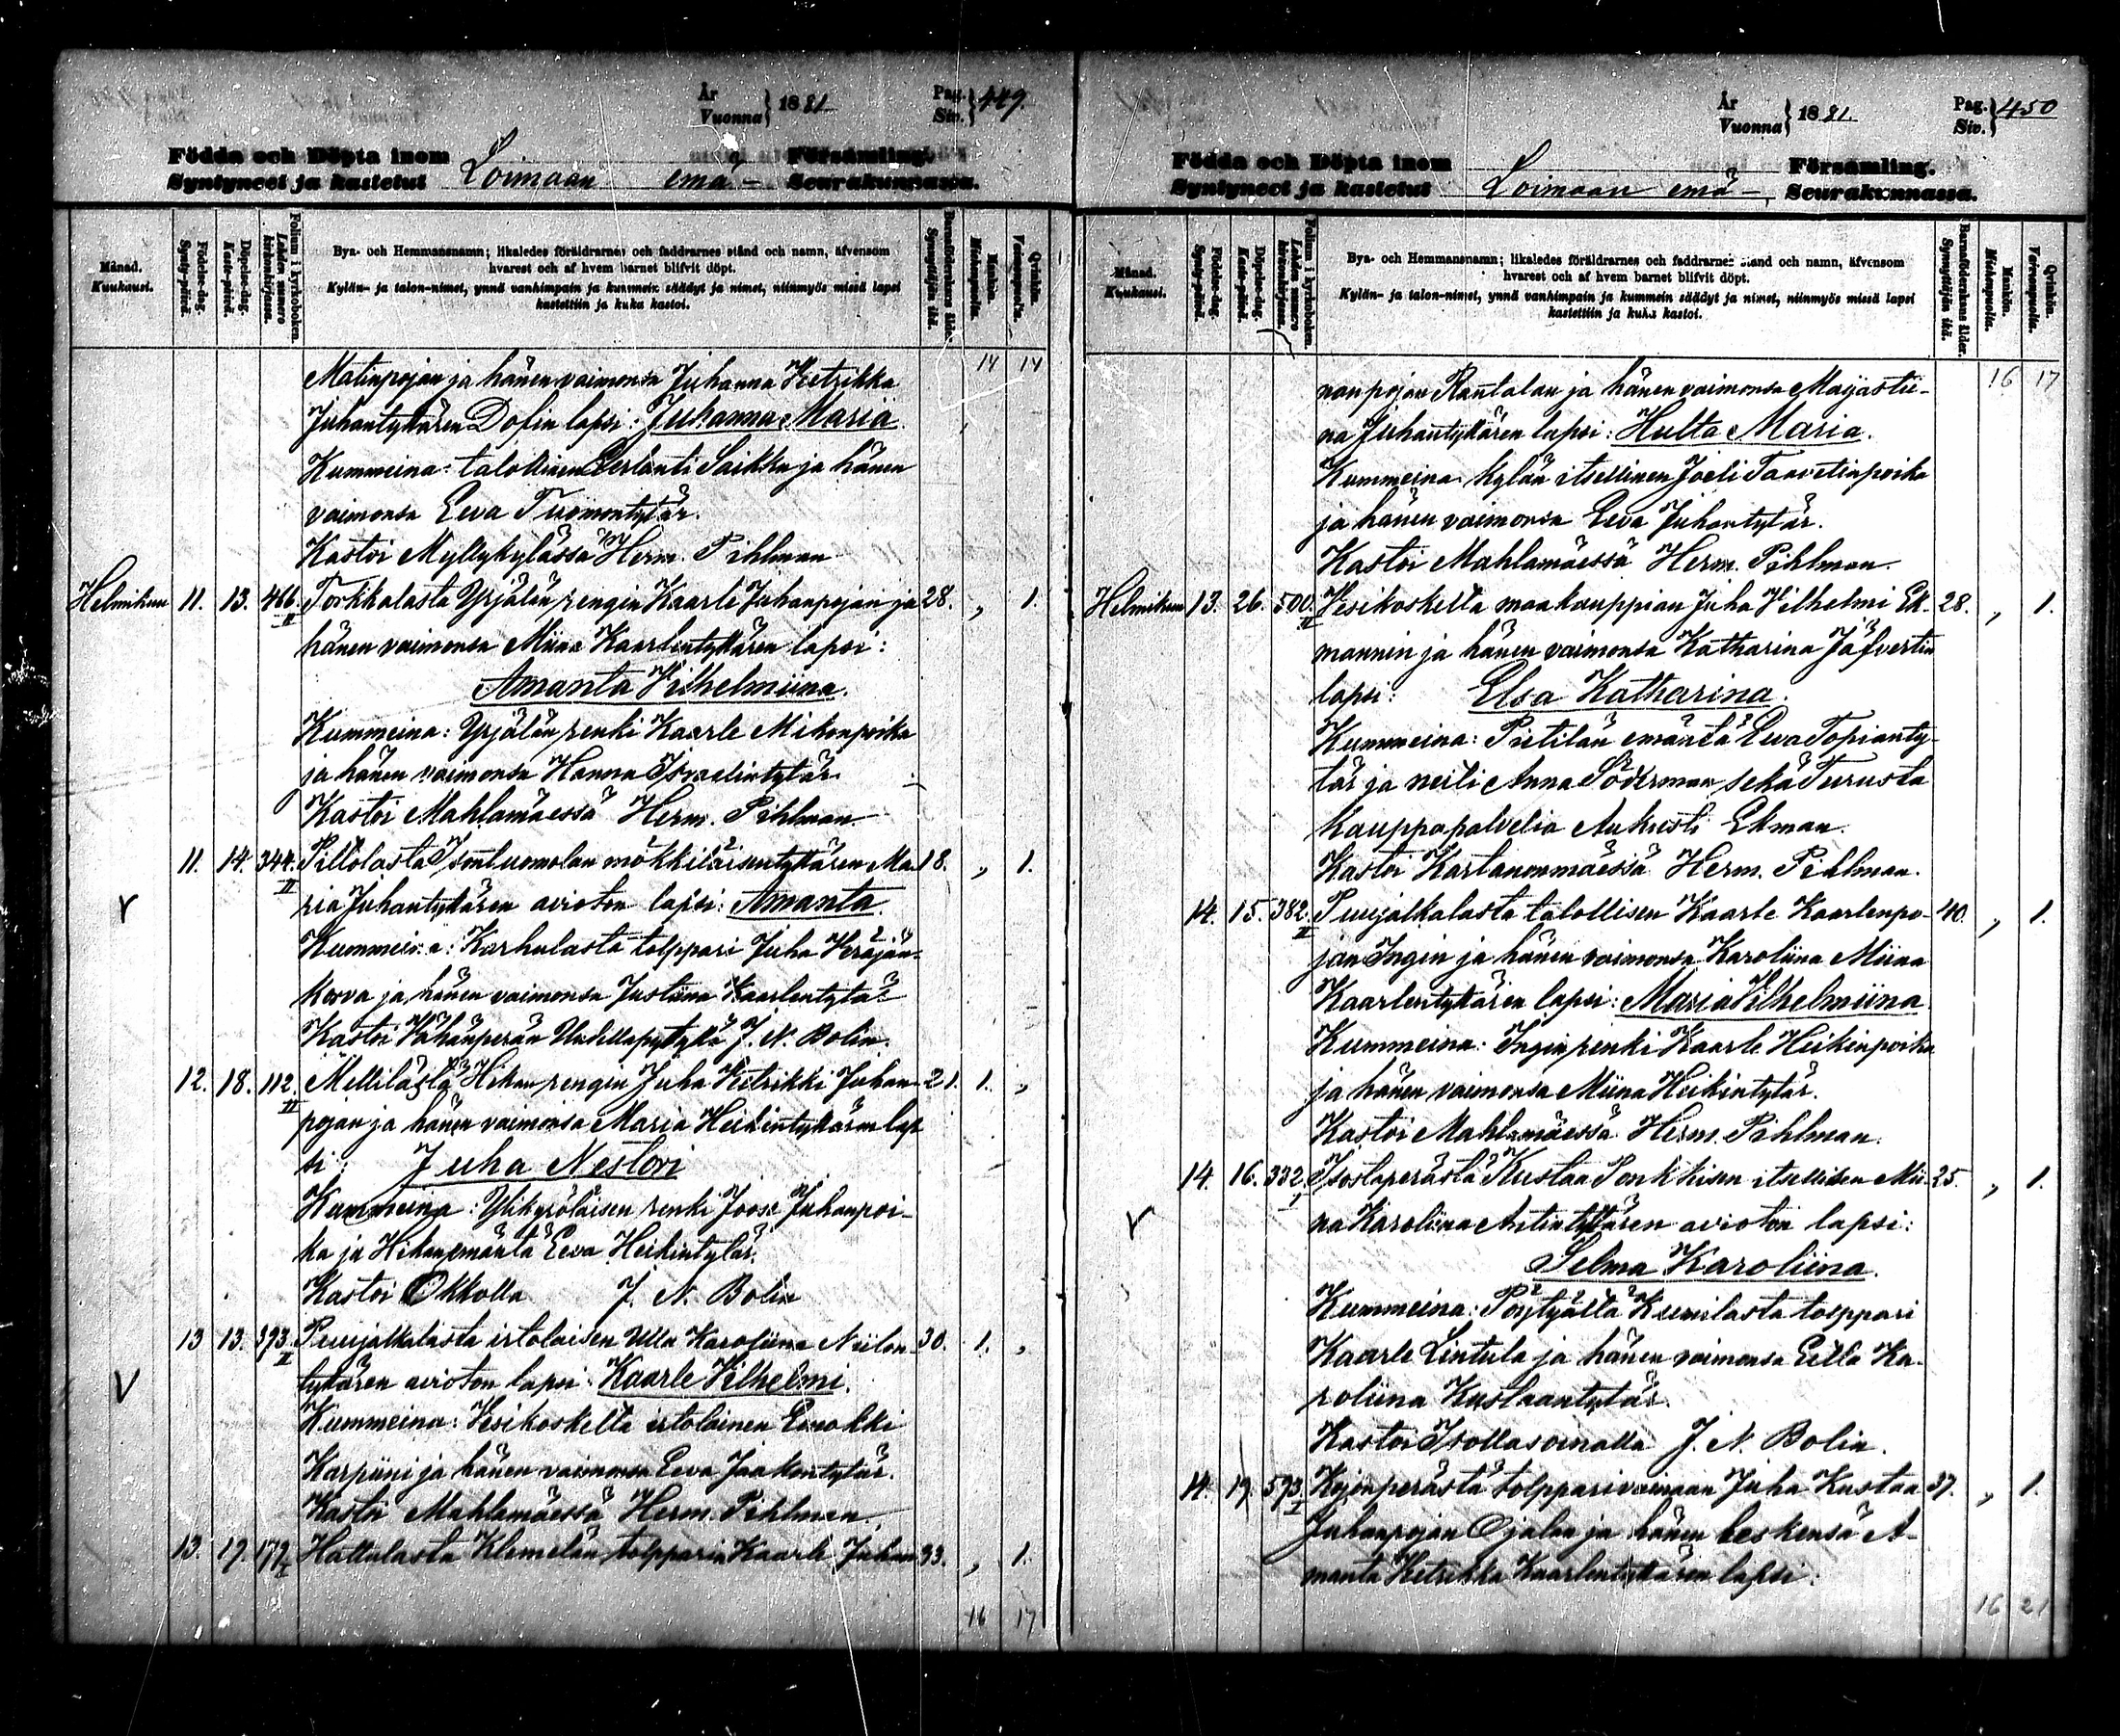 År
Vuonna } 1881
Pag.
Siv. } 449.
Födda och Döpta inom Församling.
Syntyneet ja kastetut Loimaan emä- Seurakunnassa.
Månad.
Kuukausi.
Födelse-dag.
Synty-päivä.
Döpelse-dag.
Kaste-päivä.
Folium i kyrkoboken.
Lehden numero kirkonkirjassa.
Bya- och Hemmansnamn; likaledes föräldrarnes och faddrarnes stånd och namn, äfvensom
hvarest och af hvem barnet blifvit döpt.
Kylän- ja talon-nimet, ynnä vanhimpain ja kummein säädyt ja nimet, niinmyös missä lapsi
kastettiin ja kuka kastoi.
Barnaföderskans ålder.
Synnyttäjän ikä.
Mankön.
Miehenpuolia.
Qvinkön.
Vaimonpuolia.
14 14
Matinpojan ja hänen vaimonsa Juhanna Hetrikka
Juhantyttären Dofin lapsi: Juhanna Maria
Kummeina: talollinen Saikku ja hänen
vaimonsa Eeva Tuomontytär.
Kastoi Myllykylässä Herm. Pihlman
Helmikuu 11. 13. 466. II Torkkalasta Yrjälän rengin Kaarle Juhanpojan ja 28. „ 1.
hänen vaimonsa Miina Kaarlentyttären lapsi:
Amanta Vilhelmiina.
Kummeina: Yrjälän renki Kaarle Mikonpoika
ja hänen vaimonsa Hanna Israelintytär.
Kastoi Mahlamäessä Herm. Pihlman
11. 14. 344. II Pillolasta mökkiläisentyttären Ma- 18. „ 1.
ria Juhantyttären avioton lapsi: Amanta
Kummeina: Karhulasta tolppari Juha Keräjän-
korva ja hänen vaimonsa Justiina Kaarlentytär
Kastoi Vähänperän J. N. Bolin.
12. 18. 112. II Mellilästä Hihan rengin Juha Hetrikki Juhan- 21. 1. „
pojan ja hänen vaimonsa Maria Heikintyttären lap-
si: Juha Nestori
Kummeina: Ylikyröläisen renki Joose Juhanpoi-
ka ja Hihan emäntä Eeva Heikintytär.
Kastoi Okkolla J. N. Bolin
13 13. 393. II Puujalkalasta irtolaisen Ulla Karoliina Niilon- 30. 1. „
tyttären avioton lapsi: Kaarle Vilhelmi.
Kummeina: Vesikoskelta irtolainen Enokki
Karpiini ja hänen vaimonsa Eeva Jaakontytär.
Kastoi Mahlamäessä Herm. Pihlman
13. 19. 179. I Hattulasta Klemelän tolpparin Kaarle Juhan- 33. „ 1.
16 17
År
Vuonna } 1881.
Pag.
Siv. } 450
Födda och Döpta inom Församling.
Syntyneet ja kastetut Loimaan emä-, Seurakunnassa.
Månad.
Kuukausi.
Födelse-dag.
Synty-päivä.
Döpelse-dag.
Kaste-päivä.
Folium i kyrkoboken.
Lehden numero kirkonkirjassa.
Bya- och Hemmansnamn; likaledes föräldrarnes och faddrarnes stånd och namn, äfvensom
hvarest och af hvem barnet blifvit döpt.
Kylän- ja talon-nimet, ynnä vanhimpain ja kummein säädyt ja nimet, niinmyös missä lapsi
kastettiin ja kuka kastoi.
Barnaföderskans ålder.
Synnyttäjän ikä.
Mankön.
Miehenpuolia.
Qvinkön.
Vaimonpuolia.
16 17
nanpojan Rantalan ja hänen vaimonsa Maijastii-
na Juhantyttären lapsi: Hulta Maria.
Kummeina: kylän itsellinen Joeli Taavetinpoika
ja hänen vaimonsa Eeva Juhantytär.
Kastoi Mahlamäessä Herm. Pihlman.
Helmikuu 13. 26. 500. II Vesikoskelta maakauppian Juha Vilhelmi Ek- 28. „ 1.
mannin ja hänen vaimonsa Katharina Jäfvertin
lapsi: Elsa Katharina.
Kummeina: Pietilän emäntä Eeva Topianty-
tär ja neiti Anna Söderman sekä Turusta
kauppapalvelia Aukusti Ekman.
Kastoi Kartanonmäessä Herm. Pihlman.
14. 15. 382. II Puujalkalasta talollisen Kaarle Kaarlenpo- 40. „ 1.
jan Ingin ja hänen vaimonsa Karoliina Miina
Kaarlentyttären lapsi: Maria Vilhelmiina
Kummeina: Ingin renki Kaarle Heikinpoika
ja hänen vaimonsa Miina Heikintytär.
Kastoi Mahlamäessä Herm. Pihlman.
14. 16. 332. I Isostaperästä Kustaa Ponkkisen itsellisen Mii- 25. „ 1.
na Karoliina Antintyttären avioton lapsi:
Selma Karoliina.
Kummeina: Pöytyältä Kumilasta tolppari
Kaarle Lintula ja hänen vaimonsa Ulla Ka-
roliina Kustaantytär.
Kastoi J. N. Bolin.
14. 19. 593. I Kojonperästä tolpparivainaan Juha Kustaa 37. „ 1.
Juhanpojan Ojalan ja hänen leskensä A-
manta Hetrikka Kaarlentyttären lapsi:
16 21